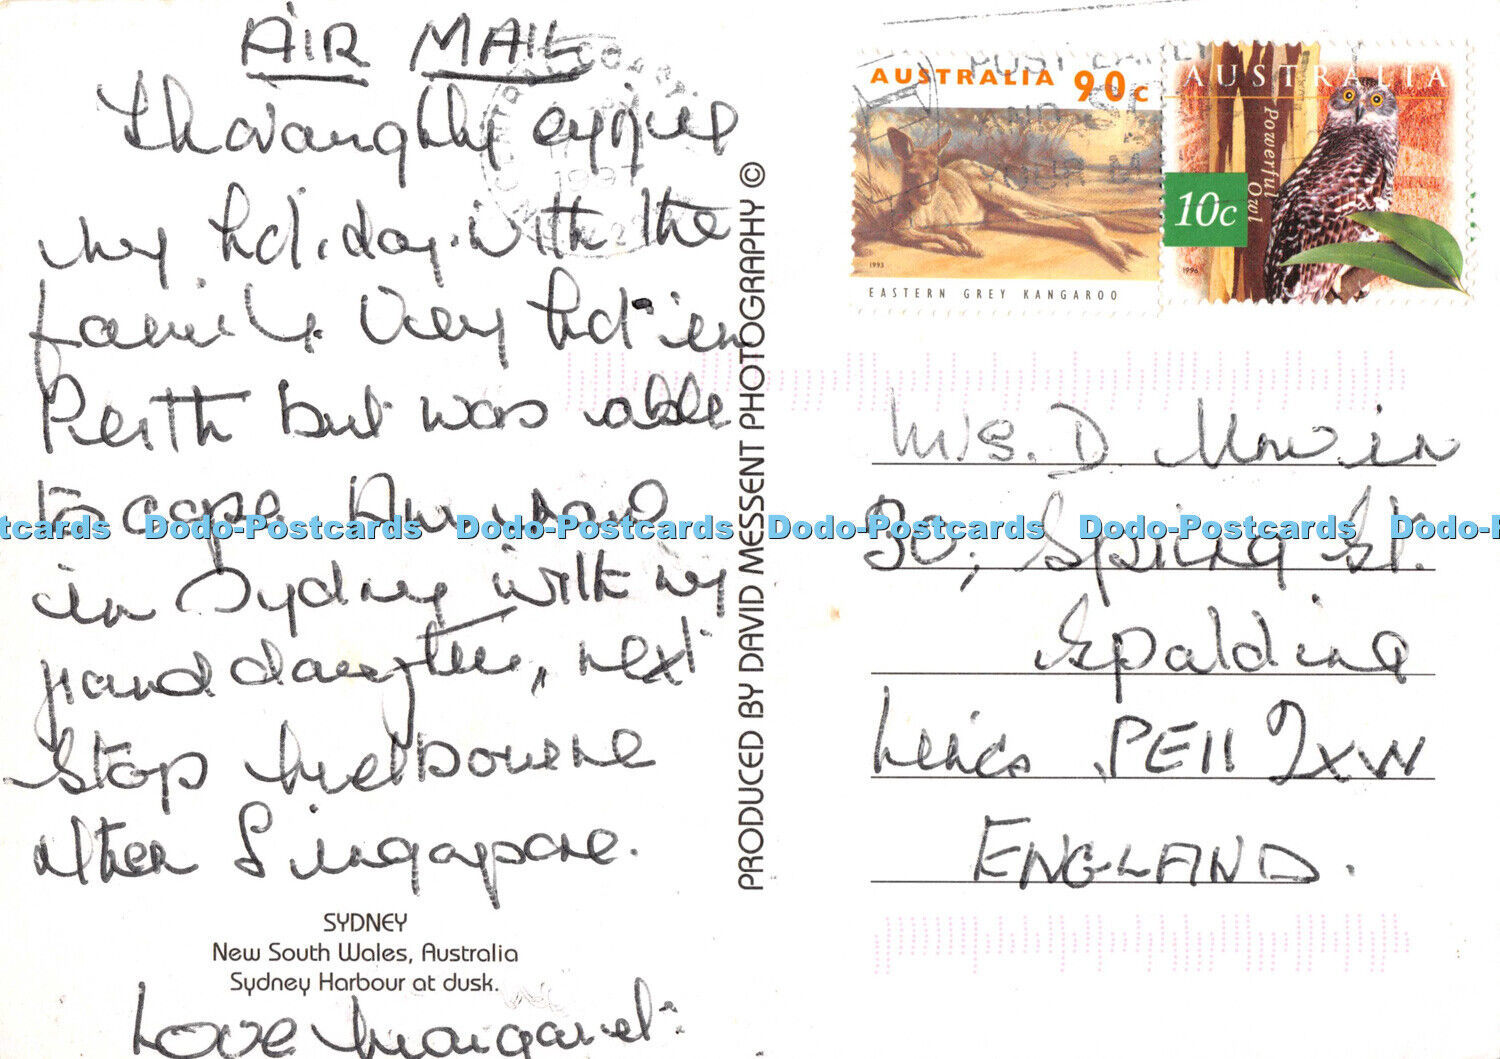 AIR MAIL
Thoroughly enjoyed
my holiday with the
family. Very hot in
Perth but was able
to cope. Am now
in Sydney with my
grand daughter, next
stop Melbourne
after Singapore.
SYDNEY
New South Wales, Australia
Sydney Harbour at dusk.
Love Margaret.
PRODUCED BY DAVID MESSENT PHOTOGRAPHY ©
AUSTRALIA 90c
1993
EASTERN GREY KANGAROO
AUSTRALIA
Powerful Owl
10c
1996
POST EARLY
1997
Mrs. D.
30, Spring St.
Spalding
Lincs PE11 2XW
ENGLAND.
Dodo-Postcards Dodo-Postcards Dodo-Postcards Dodo-Postcards